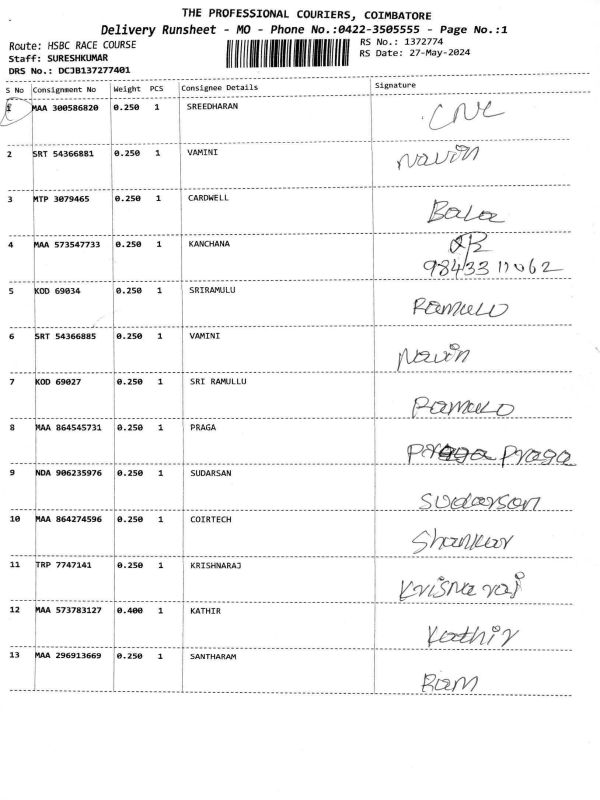 THE PROFESSIONAL COURIERS, COIMBATORE
Delivery Runsheet - MO - Phone No.:0422-3505555 - Page No.:1
Route: HSBC RACE COURSE
Staff: SURESHKUMAR
DRS No.: DCJB137277401
RS No.: 1372774
RS Date: 27-May-2024
S No Consignment No Weight PCS Consignee Details Signature
1 MAA 300586820 0.250 1 SREEDHARAN
2 SRT 54366881 0.250 1 VAMINI Navin
3 MTP 3079465 0.250 1 CARDWELL Bala
4 MAA 573547733 0.250 1 KANCHANA
9843311062
5 KOD 69034 0.250 1 SRIRAMULU Ramulu
6 SRT 54366885 0.250 1 VAMINI Navin
7 KOD 69027 0.250 1 SRI RAMULLU Ramulu
8 MAA 864545731 0.250 1 PRAGA Praga Praga
9 NDA 906235976 0.250 1 SUDARSAN Sudarson
10 MAA 864274596 0.250 1 COIRTECH Shankar
11 TRP 7747141 0.250 1 KRISHNARAJ Krisna raj
12 MAA 573783127 0.400 1 KATHIR Kathir
13 MAA 296913669 0.250 1 SANTHARAM Ram